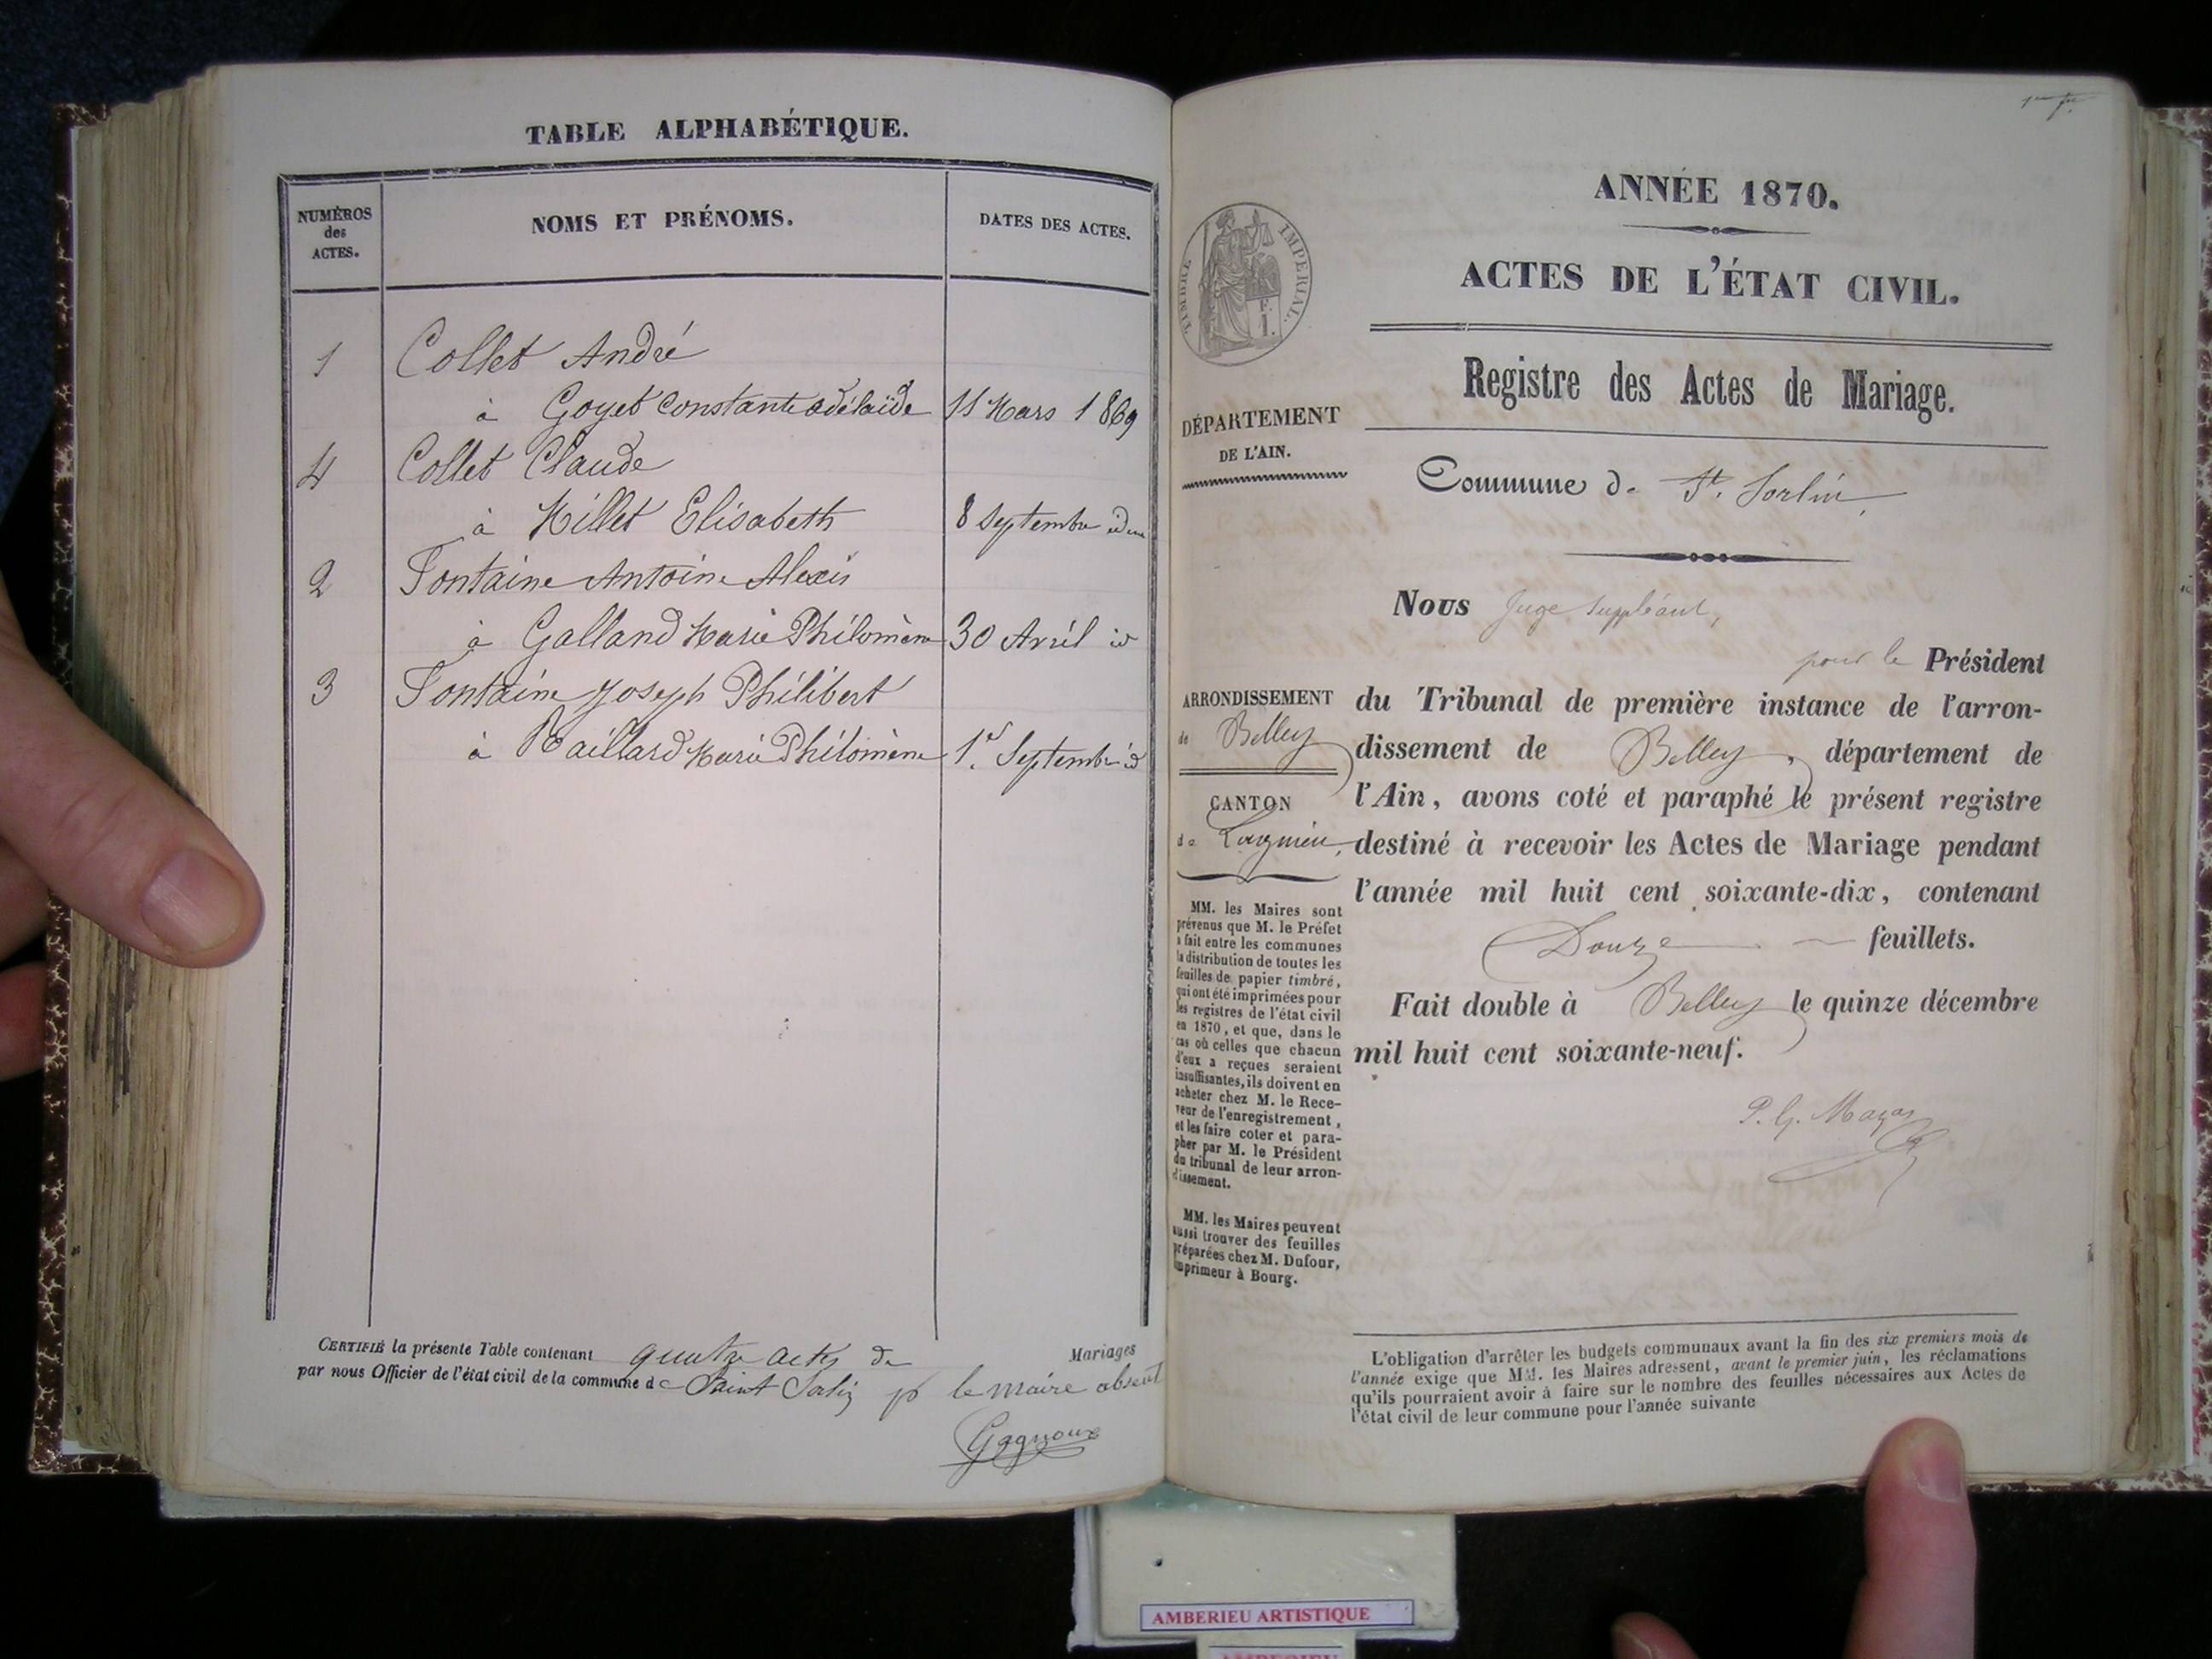 TABLE ALPHABÉTIQUE.
NUMÉROS
des
ACTES.
NOMS ET PRÉNOMS.
DATES DES ACTES.
1 Collet André
à Goyet Constante Adélaïde 11 Mars 1869
4 Collet Claude
à Millet Elisabeth 8 Septembre idem
2 Fontaine Antoine Alexis
à Galland Marie Philomène 30 Avril id
3 Fontaine Joseph Philibert
à Baillard Marie Philomène 1er Septembre id
CERTIFIÉ la présente Table contenant quatre actes de Mariages
par nous Officier de l'état civil de la commune de Saint Sorlin pr le maire absent
Gagnoux
ANNÉE 1870.
ACTES DE L'ÉTAT CIVIL.
Registre des Actes de Mariage.
TIMBRE IMPÉRIAL.
DÉPARTEMENT
DE L'AIN.
Commune de St. Sorlin,
Nous Juge Suppléant,
pour le Président
du Tribunal de première instance de l'arron-
dissement de Belley, département de
l'Ain, avons coté et paraphé le présent registre
destiné à recevoir les Actes de Mariage pendant
l'année mil huit cent soixante-dix, contenant
Douze feuillets.
Fait double à Belley le quinze décembre
mil huit cent soixante-neuf.
P. G. Mazas
ARRONDISSEMENT
de Belley
CANTON
de Lagnieu,
MM. les Maires sont
prévenus que M. le Préfet
a fait entre les communes
la distribution de toutes les
feuilles de papier timbré,
qui ont été imprimées pour
les registres de l'état civil
en 1870, et que, dans le
cas où celles que chacun
d'eux a reçues seraient
insuffisantes, ils doivent en
acheter chez M. le Rece-
veur de l'enregistrement,
et les faire coter et para-
pher par M. le Président
du tribunal de leur arron-
dissement.
MM. les Maires peuvent
aussi trouver des feuilles
préparées chez M. Dufour,
imprimeur à Bourg.
L'obligation d'arrêter les budgets communaux avant la fin des six premiers mois de
l'année exige que MM. les Maires adressent, avant le premier juin, les réclamations
qu'ils pourraient avoir à faire sur le nombre des feuilles nécessaires aux Actes de
l'état civil de leur commune pour l'année suivante
AMBERIEU ARTISTIQUE
AMBERIEU